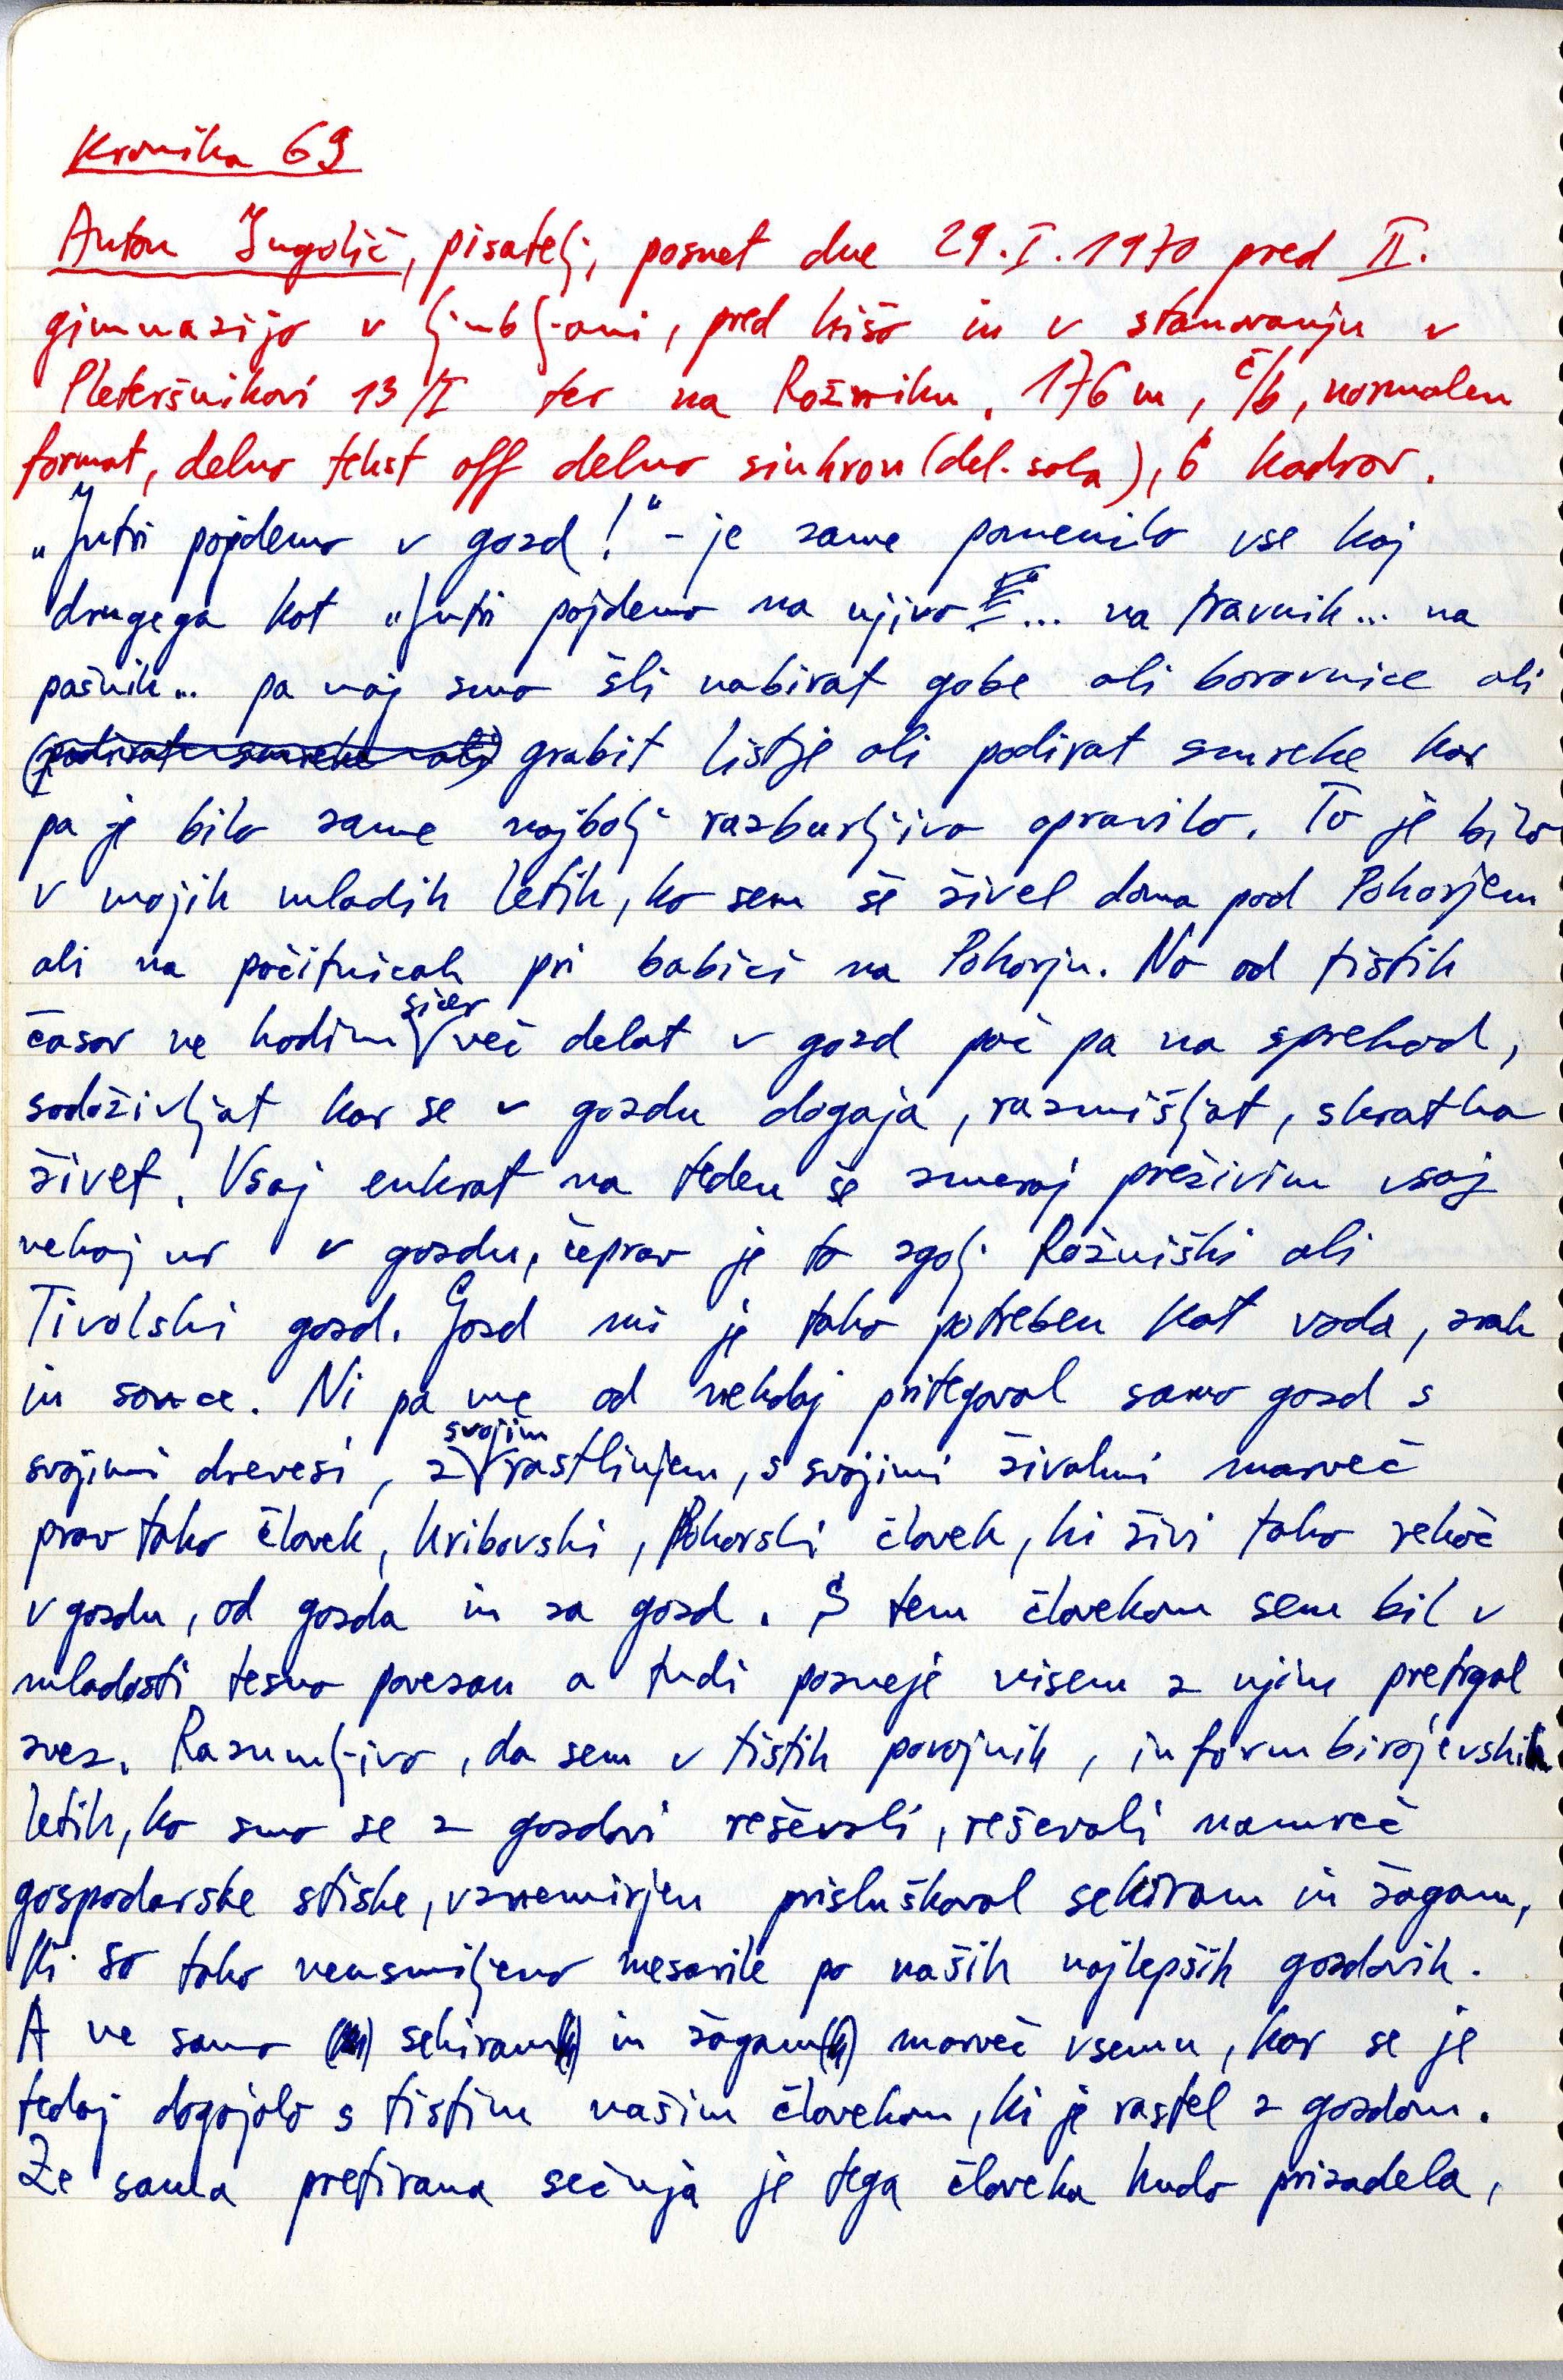 Kronika 69
Anton Ingolič, pisatelj, posnet dne 29.I.1970 pred II.
gimnazijo v Ljubljani, pred hišo in v stanovanju v
Pleteršnikovi 13/I ter na Rožniku, 176 m, č/b, normalen
format, delno tekst off delno sinhron (del. sola), 6 kadrov.
"Jutri pojdemo v gozd!" - je zame pomenilo vse kaj
drugega kot "Jutri pojdemo na njivo"... na travnik... na
pašnik... pa naj smo šli nabirat gobe ali borovnice ali
(podirat smreke ali) grabit listje ali podirat smreke kar
pa je bilo zame najbolj razburljivo opravilo. To je bilo
v mojih mladih letih, ko sem še živel doma pod Pohorjem
ali na počitnicah pri babici na Pohorju. No od tistih
časov ne hodim sicer več delat v gozd pač pa na sprehod,
sodoživljat kar se v gozdu dogaja, razmišljat, skratka
živet. Vsaj enkrat na teden še zmeraj preživim vsaj
nekaj ur v gozdu, čeprav je to zgolj Rožniški ali
Tivolski gozd. Gozd mi je tako potreben kot voda, zrak
in sonce. Ni pa me od nekdaj pritegoval samo gozd s
svojimi drevesi, z svojim rastlinjem, s svojimi živalmi marveč
prav tako človek, hribovski, Pohorski človek, ki živi tako rekoč
v gozdu, od gozda in za gozd. S tem človekom sem bil v
mladosti tesno povezan a tudi pozneje nisem z njim pretrgal
zvez. Razumljivo, da sem v tistih povojnih, informbirojevskih
letih, ko smo se z gozdovi reševali, reševali namreč
gospodarske stiske, vznemirjen prisluškoval sekiram in žagam,
ki so tako neusmiljeno mesarile po naših najlepših gozdovih.
A ne samo sekiram in žagam marveč vsemu, kar se je
tedaj dogajalo s tistim našim človekom, ki je rastel z gozdom.
Že sama pretirana sečnja je tega človeka hudo prizadela,